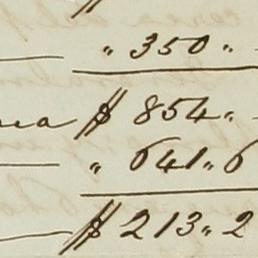 " 350 "
$ 854 "
" 641 " 6
$ 213 " 2